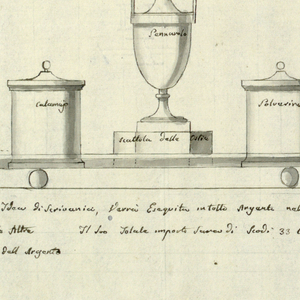 Pennarolo
Calamajo
Polverino
Scattola delle Ostie
Idea di Scrivania, Verrà Esequita in tutto Argente nel
Altra Il Suo Totale importo Sarea di Scudi 33
Dell Argento